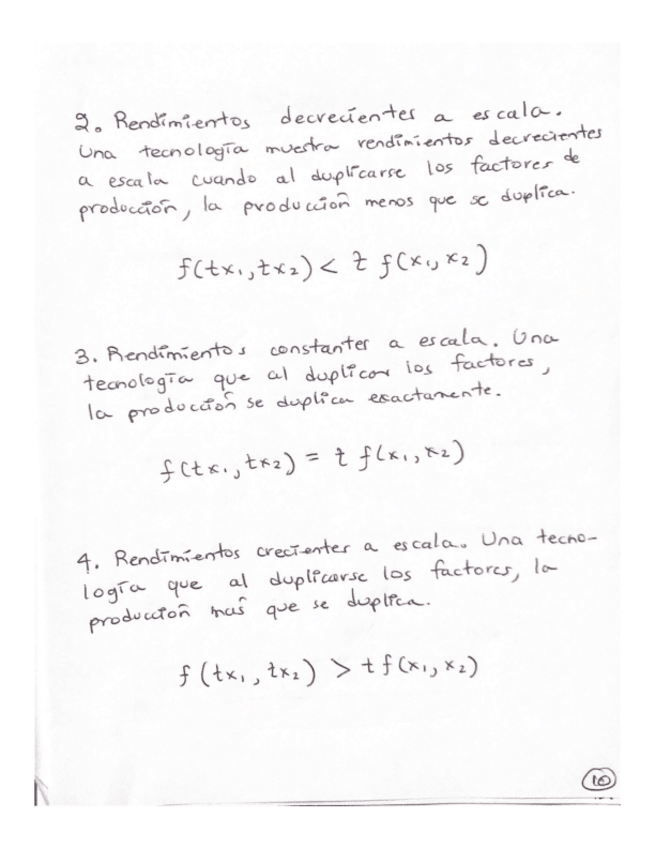 2. Rendimientos decrecientes a escala.
Una tecnología muestra rendimientos decrecientes
a escala cuando al duplicarse los factores de
producción, la producción menos que se duplica.
f(tx₁, tx₂) < t f(x₁, x₂)
3. Rendimientos constantes a escala. Una
tecnología que al duplicar los factores,
la producción se duplica exactamente.
f(tx₁, tx₂) = t f(x₁, x₂)
4. Rendimientos crecientes a escala. Una tecno-
logía que al duplicarse los factores, la
producción más que se duplica.
f(tx₁, tx₂) > t f(x₁, x₂)
10